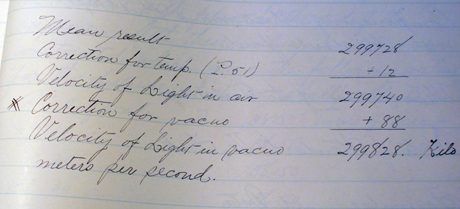 Mean result 299728
Correction for temp. (P. 51) + 12
Velocity of Light in air 299740
* Correction for vacuo + 88
Velocity of Light in vacuo 299828. Kilo
meters per second.